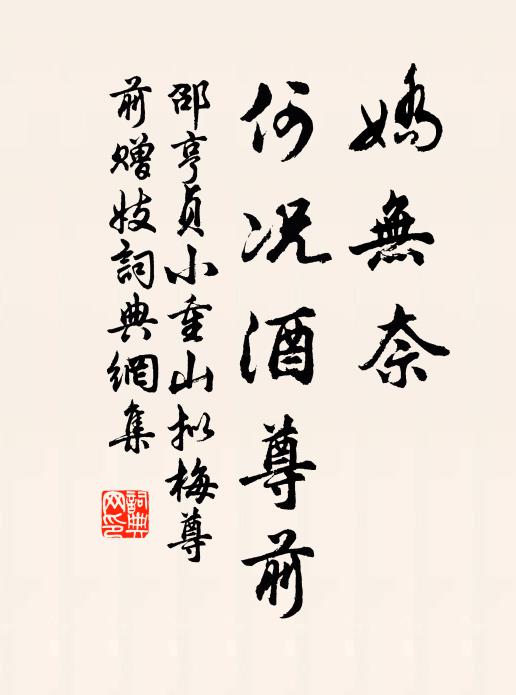 嬌無奈
何况酒尊前
邵亨貞小重山拟梅尊
前赠妓詞典網集
詞典网印